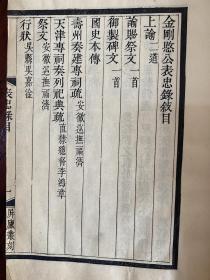 金剛愍公表忠錄敘目
上諭二道
諭賜祭文一首
御製碑文一首
國史本傳
壽州奏建專祠疏安徽巡撫福濟
天津專祠奏列祀典疏直隸總督李鴻章
祭文安徽巡撫福濟
行狀吳棠吳嘉淦
表忠錄目
一
屏廬叢刻